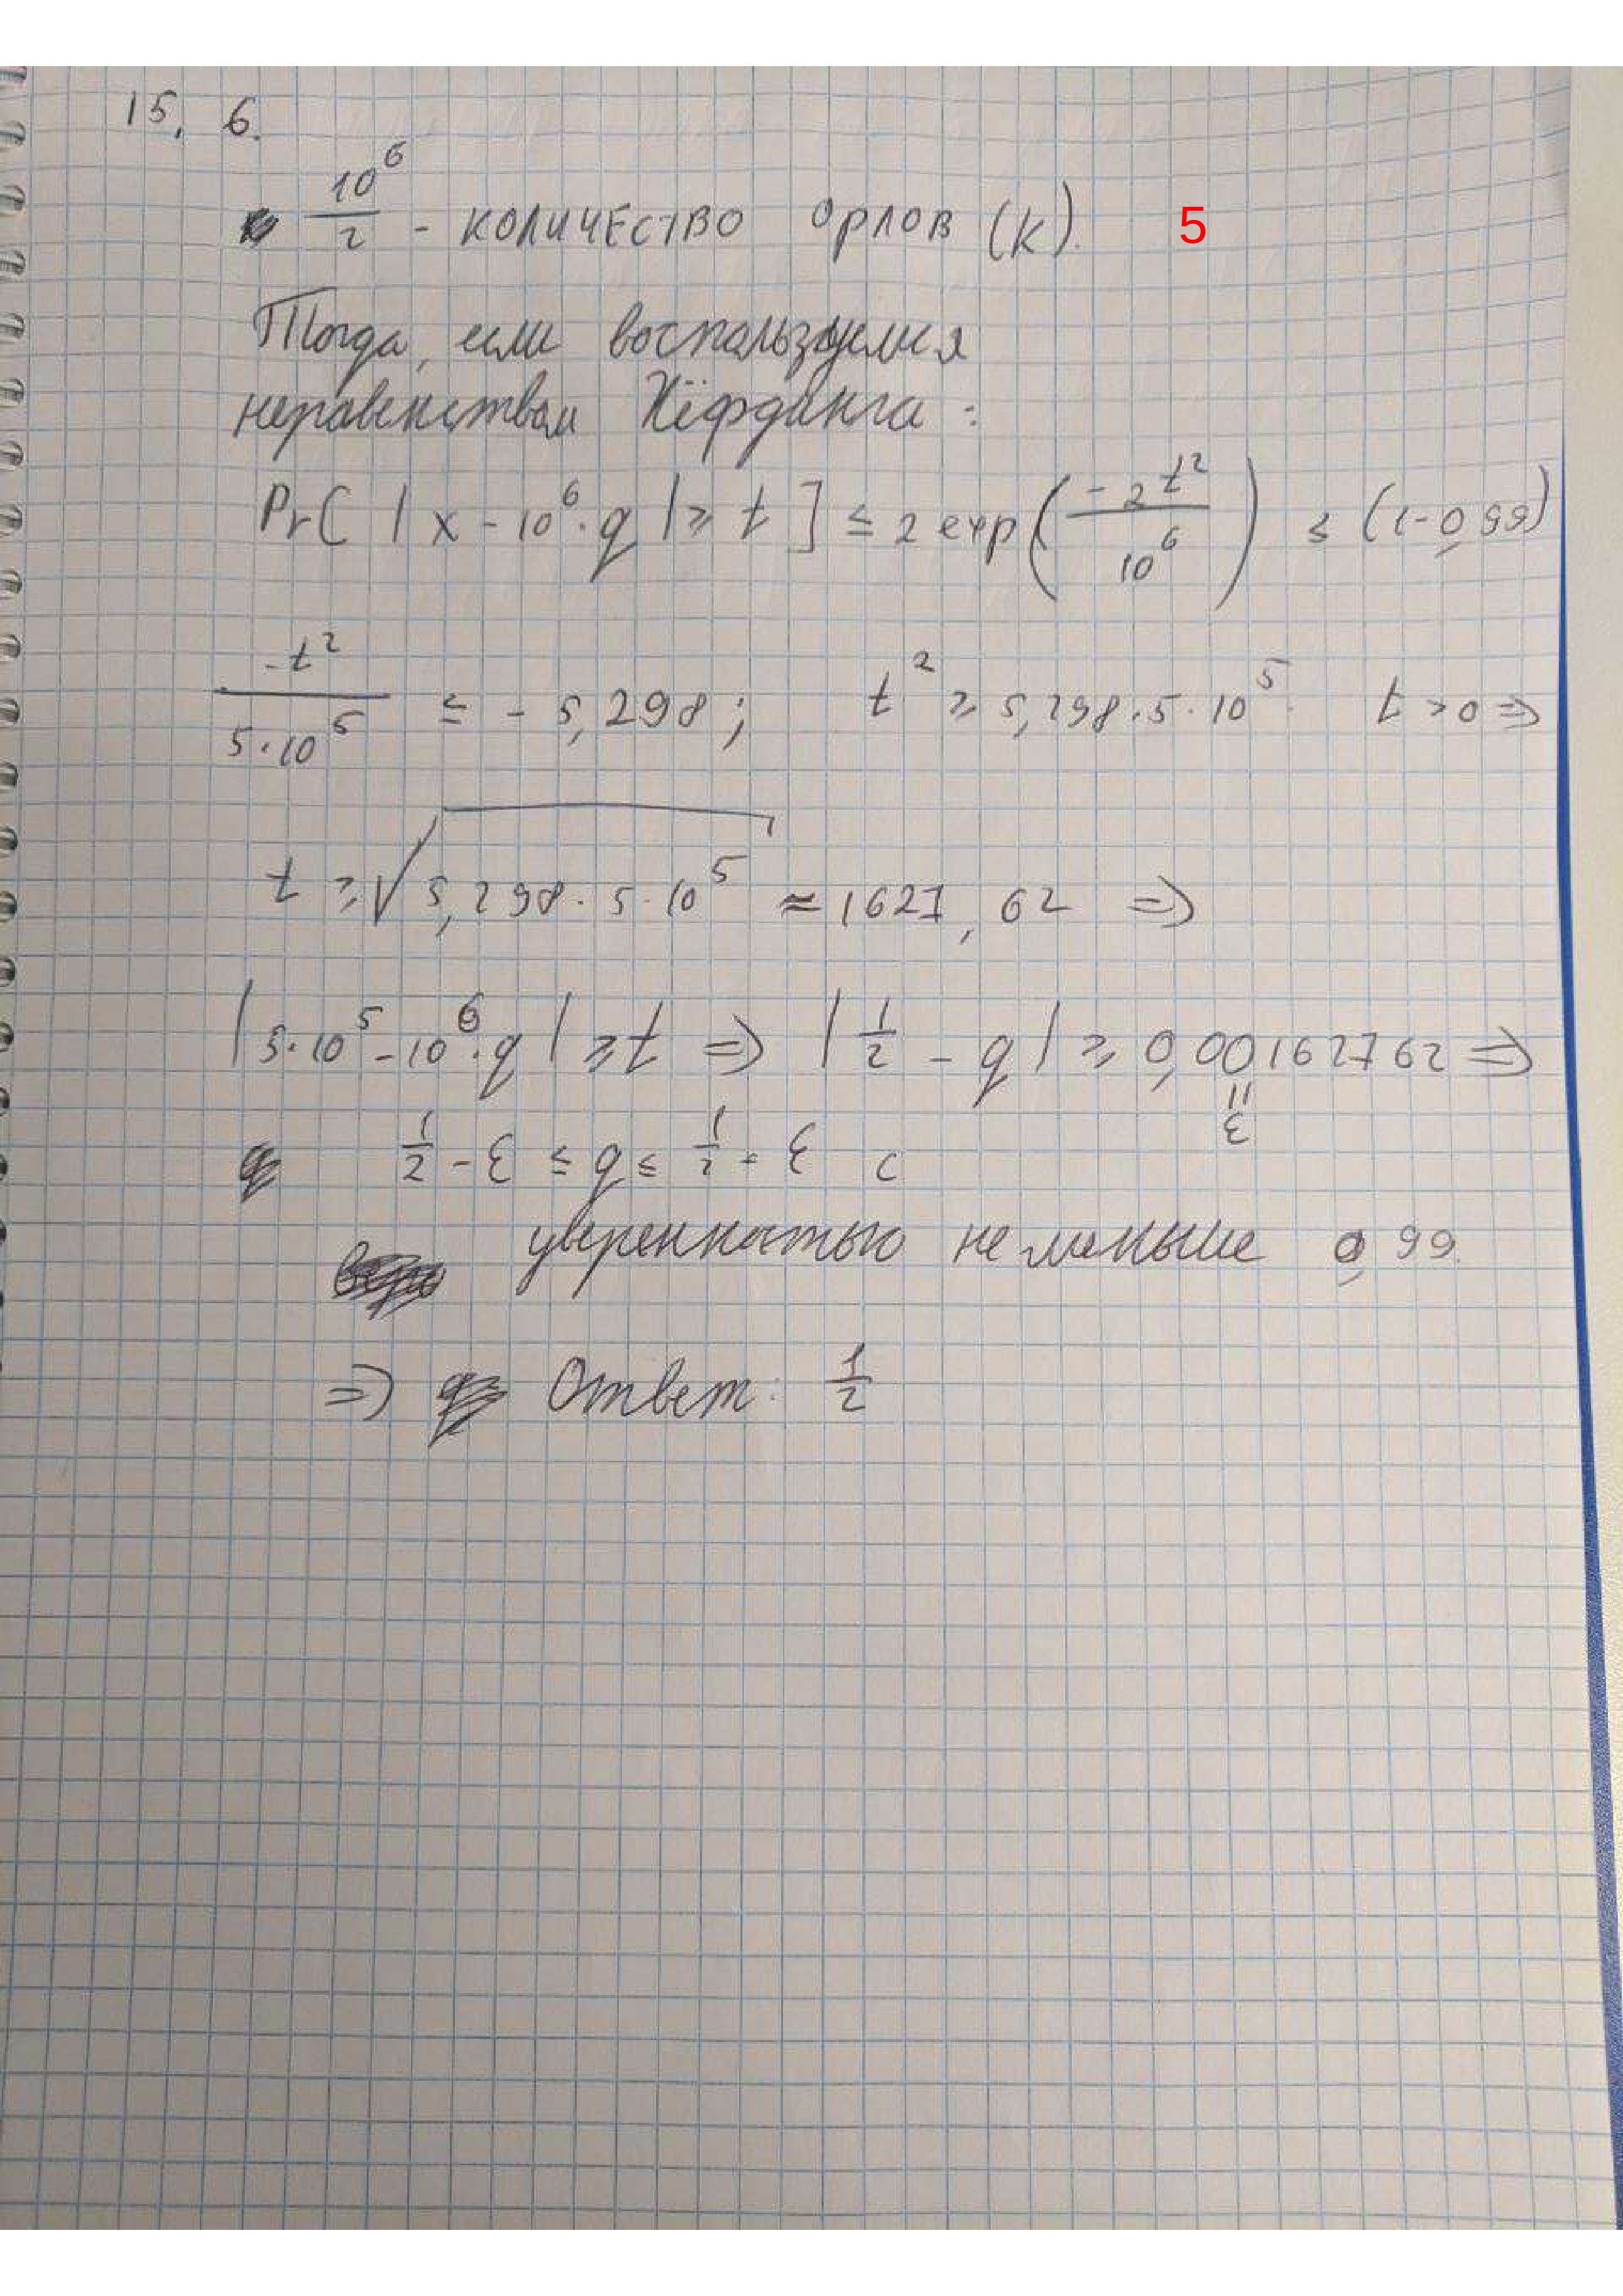 15, 6.
10^6/2 - количество орлов (k). 5
Тогда, если воспользуемся
неравенством Хёфдинга:
Pr[ |x - 10^6 · q| ≥ t ] ≤ 2 exp( -2t^2 / 10^6 ) ≤ (1-0,99)
-t^2 / 5·10^5 ≤ - 5,298; t^2 ≥ 5,298·5·10^5 t > 0 ⇒
t ≥ √5,298·5·10^5 ≈ 1627,62 ⇒
|5·10^5 - 10^6·q| ≥ t ⇒ |1/2 - q| ≥ 0,00162762 ⇒
= ε
1/2 - ε ≤ q ≤ 1/2 + ε с
уверенностью не меньше 0,99.
⇒ Ответ: 1/2